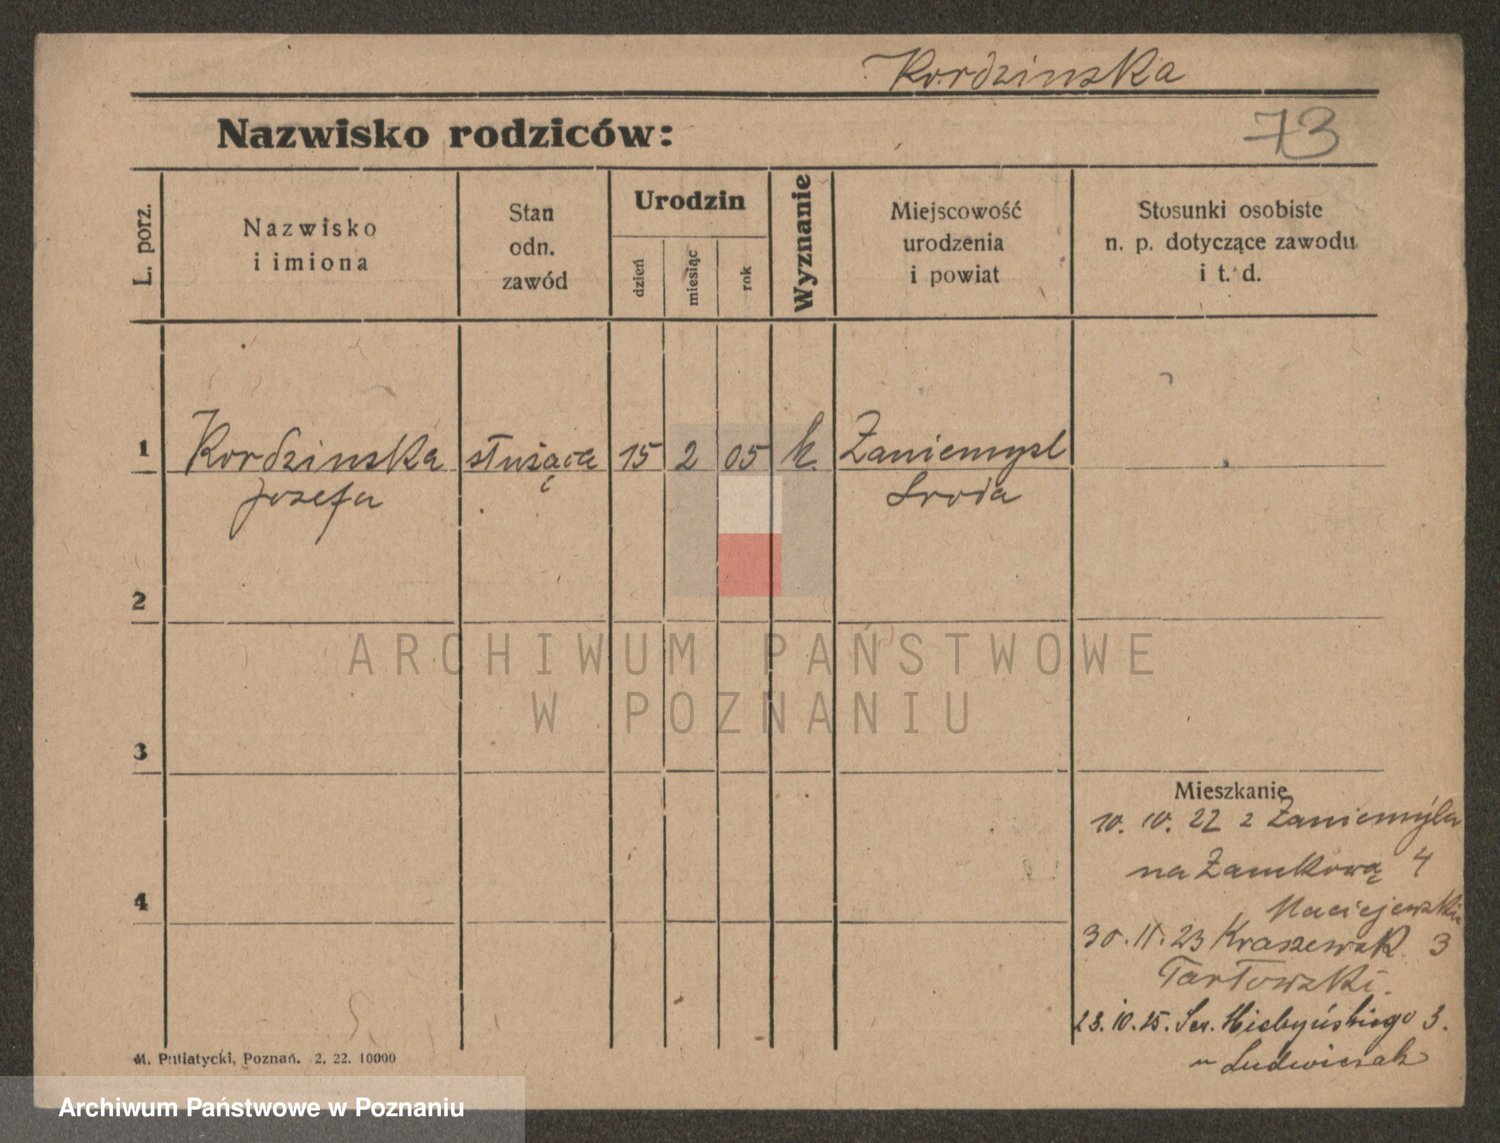 Kordzinska
Nazwisko rodziców:
73
L. porz.
Nazwisko
i imiona
Stan
odn.
zawód
Urodzin
dzień
miesiąc
rok
Wyznanie
Miejscowość
urodzenia
i powiat
Stosunki osobiste
n. p. dotyczące zawodu
i t. d.
1 Kordzinska służąca 15 2 05 k. Zaniemysl
Jozefa Sroda
2
ARCHIWUM PAŃSTWOWE
W POZNANIU
3
Mieszkanie
10. 10. 22 z Zaniemyśla
na Zamkową 4
4
Maciejewski
30. 11. 23 Kraszewsk. 3
Tarłowski.
23. 10. 25. 3.
Ludwiczak
M. Putiatycki, Poznań. 2. 22. 10000
Archiwum Państwowe w Poznaniu